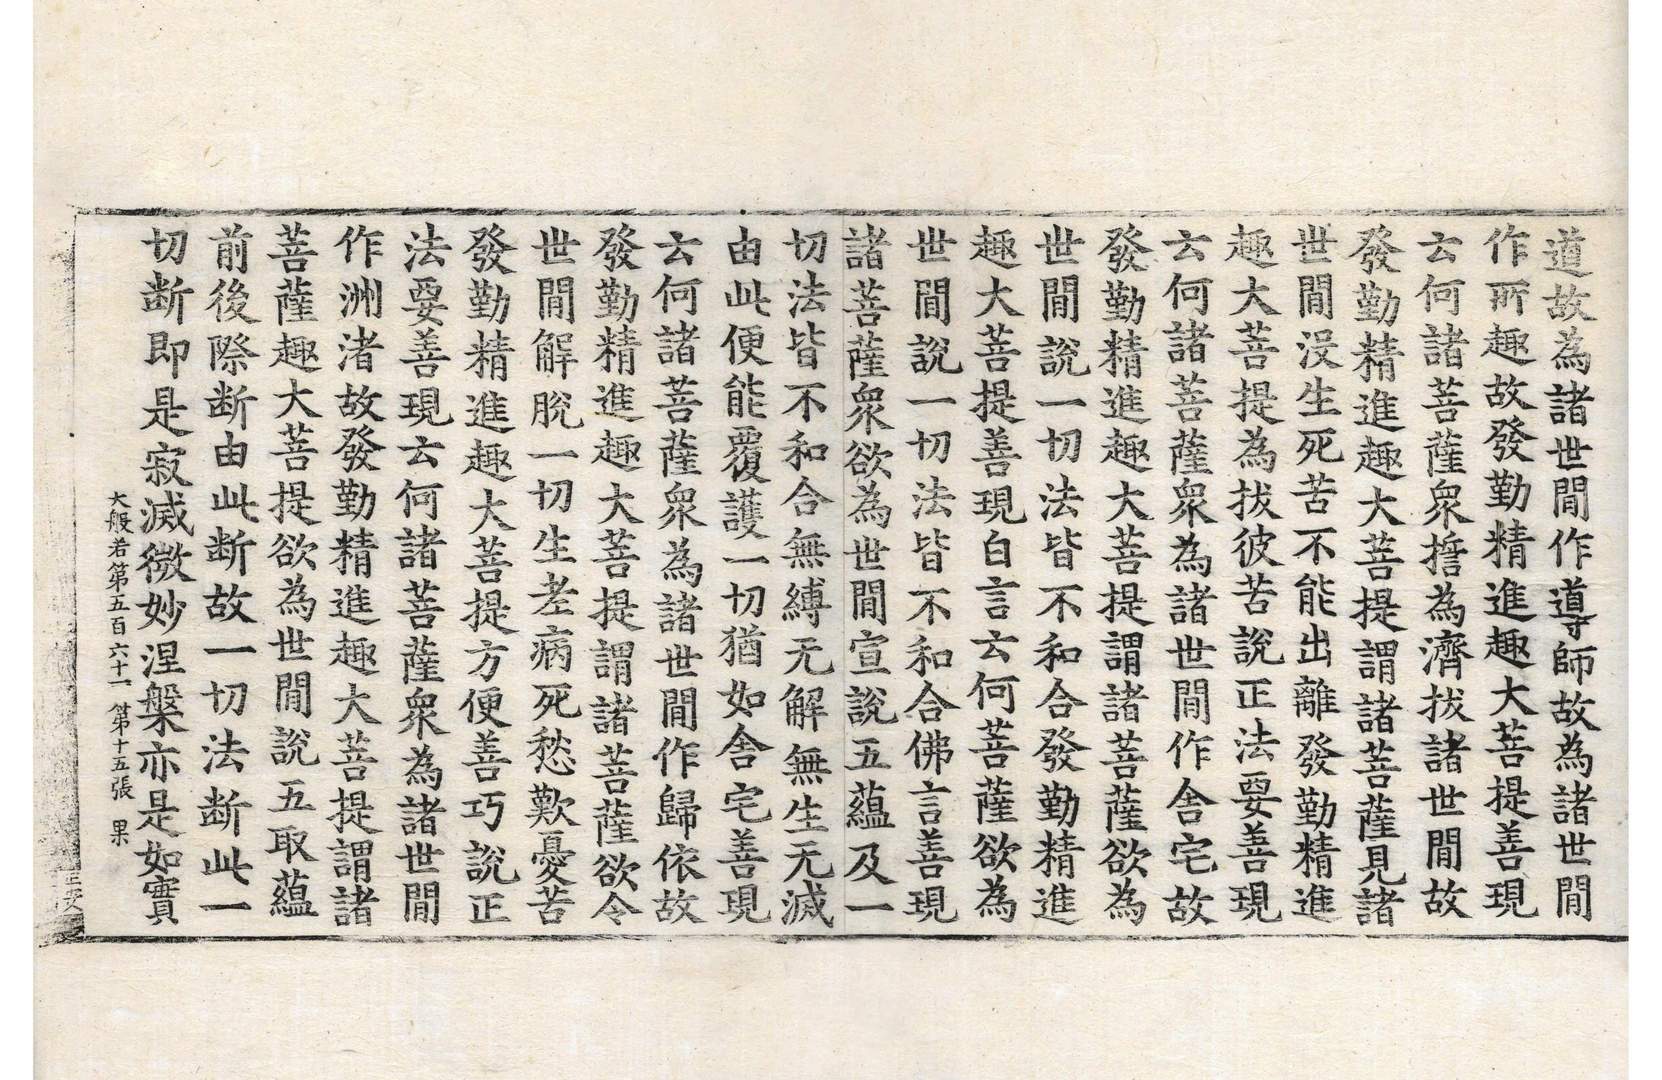 道故為諸世閒作導師故為諸世閒
作所趣故發勤精進趣大菩提善現
云何諸菩薩衆擔為濟拔諸世閒故
發勤精進趣大菩提謂諸菩薩見諸
世閒没生死苦不能出離發勤精進
趣大菩提為拔彼苦說正法要善現
云何諸菩薩衆為諸世閒作舍宅故
發勤精進趣大菩提謂諸菩薩欲為
世閒說一切法皆不和合發勤精進
趣大菩提善現白言云何菩薩欲為
世閒說一切法皆不和合佛言善現
諸菩薩衆欲為世閒宣說五蘊及一
切法皆不和合無縛无解無生无滅
由此便能覆護一切猶如舍宅善現
云何諸菩薩衆為諸世閒作歸依故
發勤精進趣大菩提謂諸菩薩欲令
世閒解脫一切生老病死愁歎憂苦
發勤精進趣大菩提方便善巧說正
法要善現云何諸菩薩衆為諸世閒
作洲渚故發勤精進趣大菩提謂諸
菩薩趣大菩提欲為世閒說五取蘊
前後際断由此断故一切法断此一
切断即是寂滅微妙涅槃亦是如實
大般若第五百六十一 第十五張 果